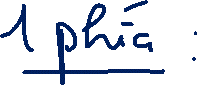 1 phía :